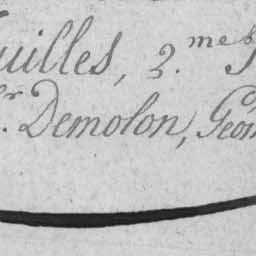 uilles, 2.mes
r. Demolon, Géom